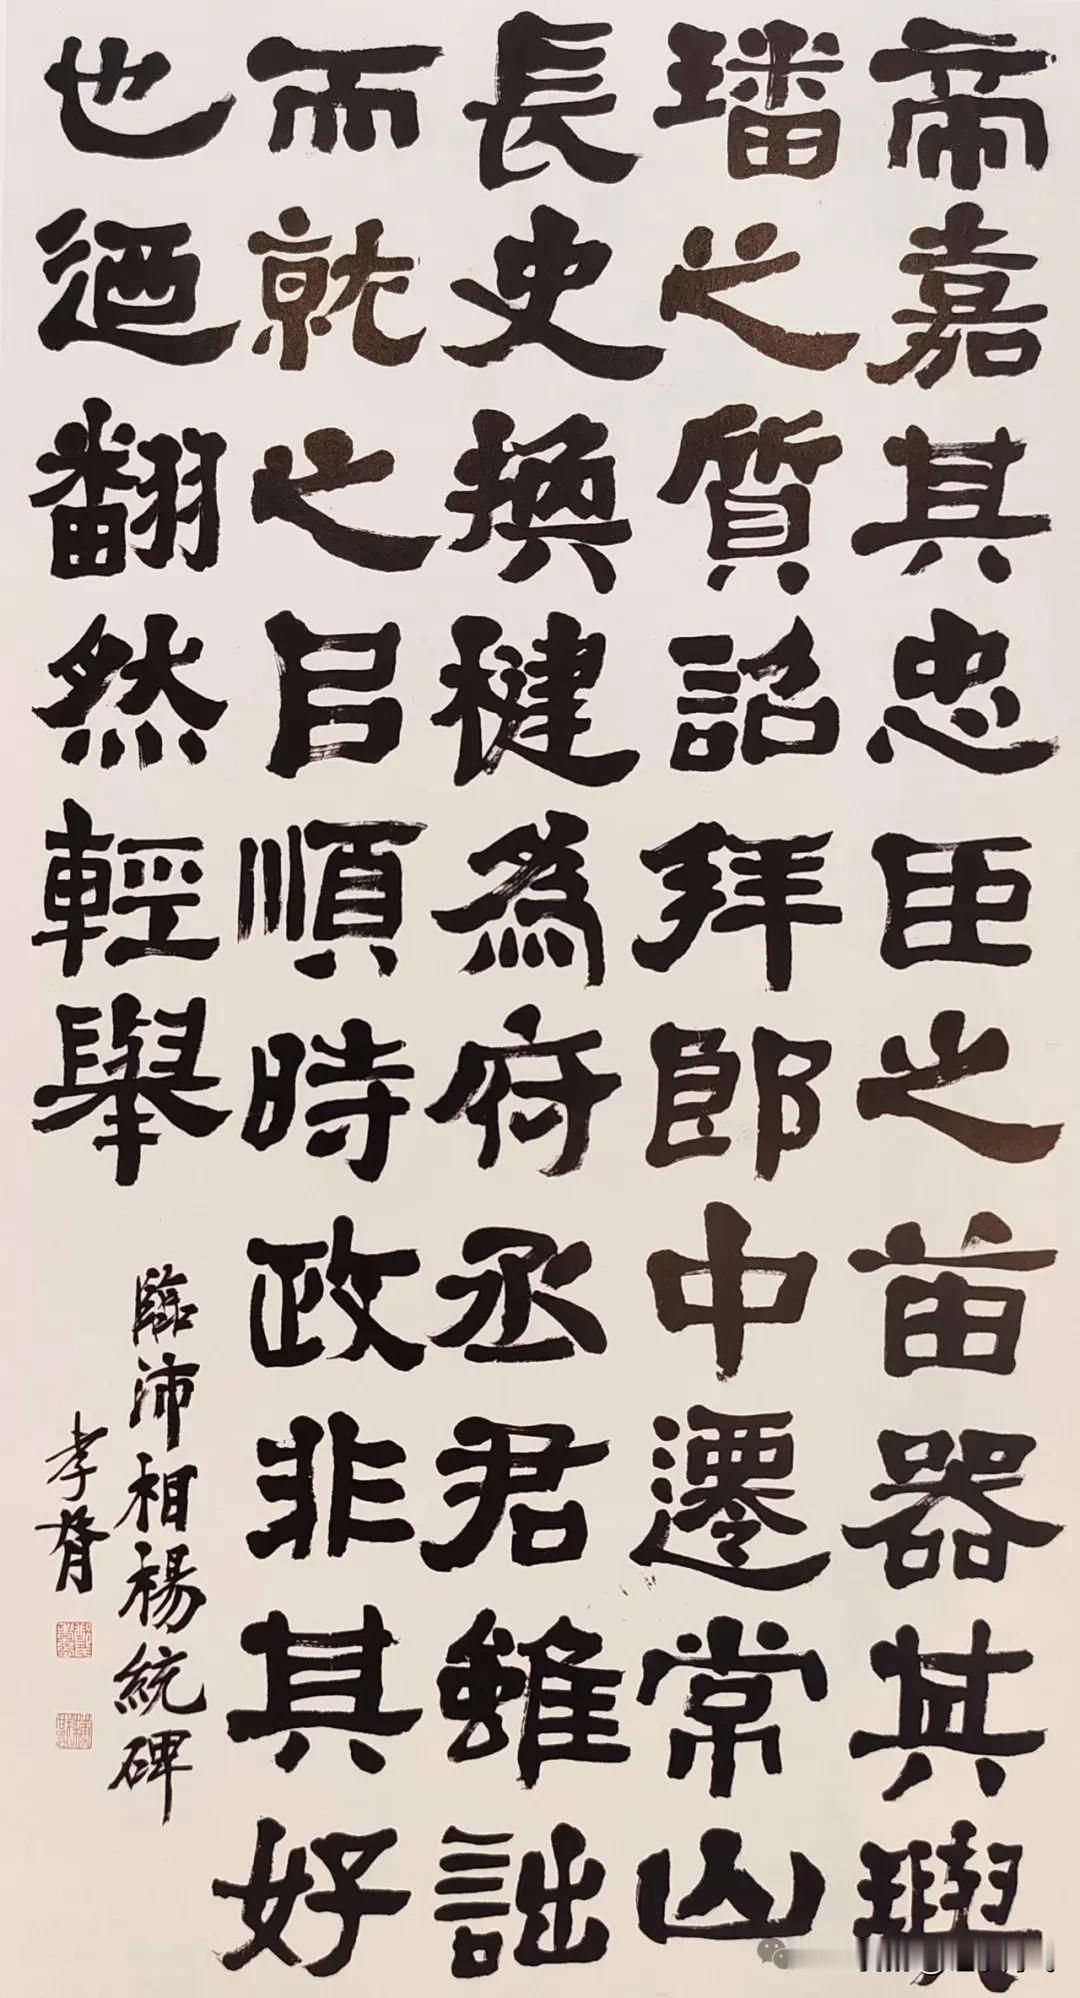 帝嘉其忠臣之苗器其璵
璠之質詔拜郎中遷常山
長史換犍為府丞君雖詘
而就之㠯順時政非其好
也迺翻然輕舉
臨沛相楊統碑
孝胥